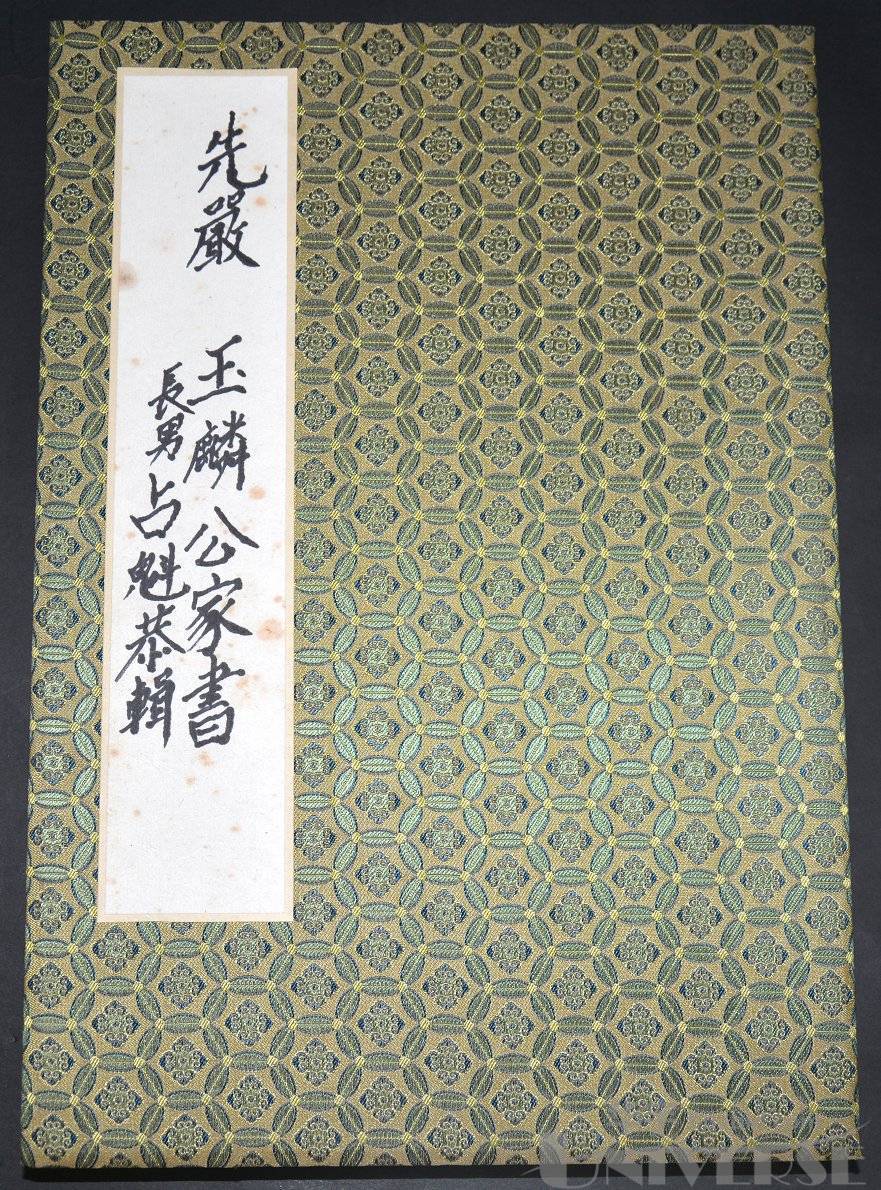 先嚴 玉麟公家書
長男占魁恭輯
UNIVERSE